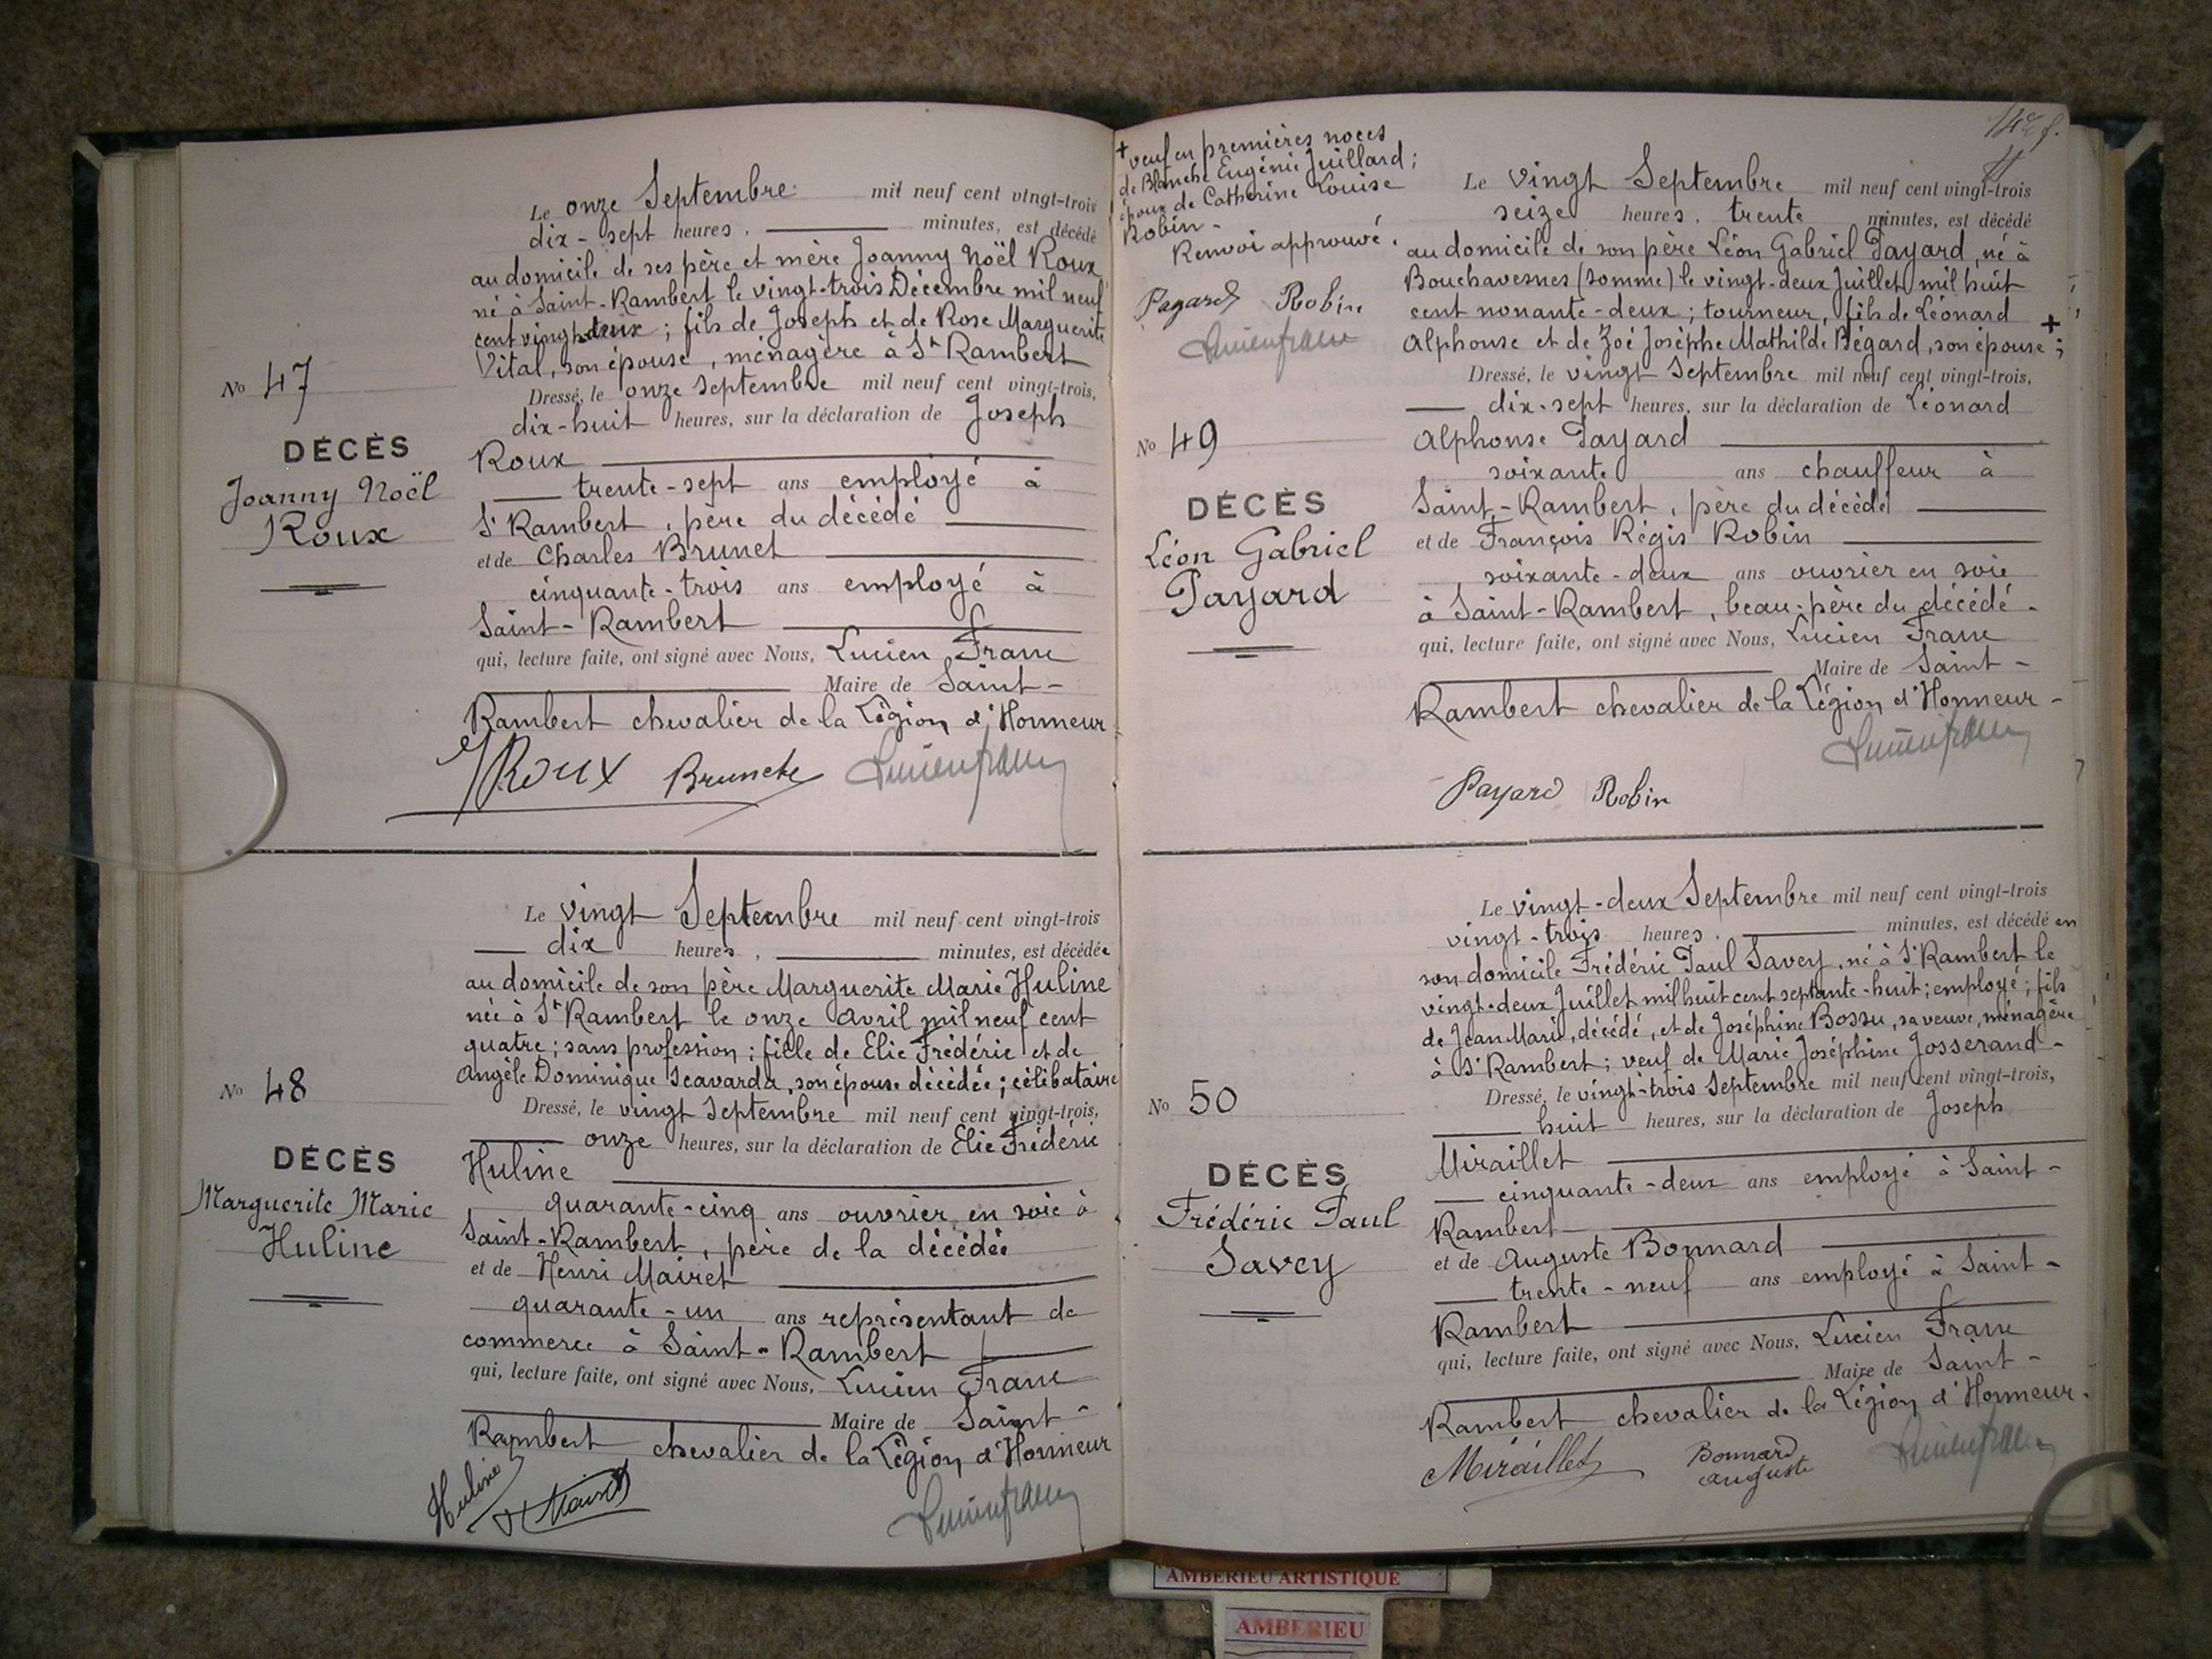 Le onze Septembre mil neuf cent vingt-trois
dix-sept heures, minutes, est décédé
au domicile de ses père et mère Joanny Noël Roux
né à Saint-Rambert le vingt-trois Décembre mil neuf
cent vingt-deux ; fils de Joseph et de Rose Marguerite
Vital, son épouse, ménagère à St Rambert
Dressé, le onze Septembre mil neuf cent vingt-trois,
dix-huit heures, sur la déclaration de Joseph
Roux
trente-sept ans employé à
St Rambert, père du décédé
et de Charles Brunet
cinquante-trois ans employé à
Saint-Rambert
qui, lecture faite, ont signé avec Nous, Lucien Franc
Maire de Saint-
Rambert chevalier de la Légion d'Honneur
No 47
DÉCÈS
Joanny Noël
Roux
Roux
Le vingt Septembre mil neuf cent vingt-trois
dix heures, minutes, est décédée
au domicile de son père Marguerite Marie Huline
née à St Rambert le onze avril mil neuf cent
quatre ; sans profession ; fille de Elie Frédéric et de
Angèle Dominique Scavarda, son épouse décédée ; célibataire
Dressé, le vingt Septembre mil neuf cent vingt-trois,
onze heures, sur la déclaration de Elie Frédéric
Huline
quarante-cinq ans ouvrier en soie à
Saint-Rambert, père de la décédée
et de Henri Mairet
quarante-un ans représentant de
commerce à Saint-Rambert
qui, lecture faite, ont signé avec Nous, Lucien Franc
Maire de Saint-
Rambert chevalier de la Légion d'Honneur
No 48
DÉCÈS
Marguerite Marie
Huline
Huline
14e f.
+ veuf en premières noces
de Blanche Eugénie Juillard ;
époux de Catherine Louise
Robin -
Renvoi approuvé.
Payard Robin
Le vingt Septembre mil neuf cent vingt-trois
seize heures, trente minutes, est décédé
au domicile de son père Léon Gabriel Payard, né à
Bouchavesnes (Somme) le vingt-deux Juillet mil huit
cent nonante-deux ; tourneur, fils de Léonard
Alphonse et de Zoé Josèphe Mathilde Bégard, son épouse + ;
Dressé, le vingt Septembre mil neuf cent vingt-trois,
dix-sept heures, sur la déclaration de Léonard
Alphonse Payard
soixante ans chauffeur à
Saint-Rambert, père du décédé
et de François Régis Robin
soixante-deux ans ouvrier en soie
à Saint-Rambert, beau-père du décédé -
qui, lecture faite, ont signé avec Nous, Lucien Franc
Maire de Saint-
Rambert chevalier de la Légion d'Honneur -
No 49
DÉCÈS
Léon Gabriel
Payard
Payard Robin
Le vingt-deux Septembre mil neuf cent vingt-trois
vingt-trois heures, minutes, est décédé en
son domicile Frédéric Paul Savey, né à St Rambert le
vingt-deux Juillet mil huit cent septante-huit ; employé ; fils
de Jean Marie, décédé, et de Joséphine Bossu, sa veuve, ménagère
à St Rambert ; veuf de Marie Joséphine Josserand -
Dressé, le vingt-trois Septembre mil neuf cent vingt-trois,
huit heures, sur la déclaration de Joseph
Miraillet
cinquante-deux ans employé à Saint-
Rambert
et de Auguste Bonnard
trente-neuf ans employé à Saint-
Rambert
qui, lecture faite, ont signé avec Nous, Lucien Franc
Maire de Saint-
Rambert chevalier de la Légion d'Honneur.
No 50
DÉCÈS
Frédéric Paul
Savey
Miraillet Bonnard
auguste
AMBERIEU ARTISTIQUE
AMBERIEU